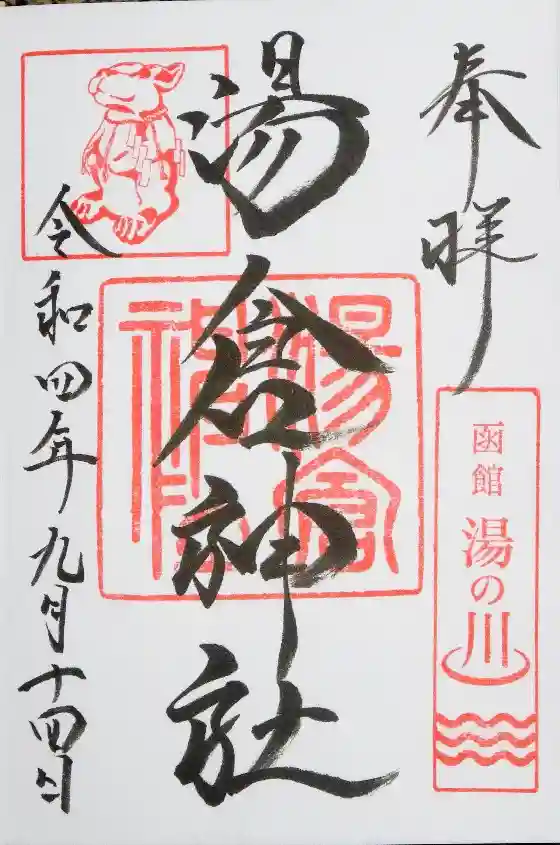 奉拝
函館
湯の川
湯倉神社
令和四年九月十四日